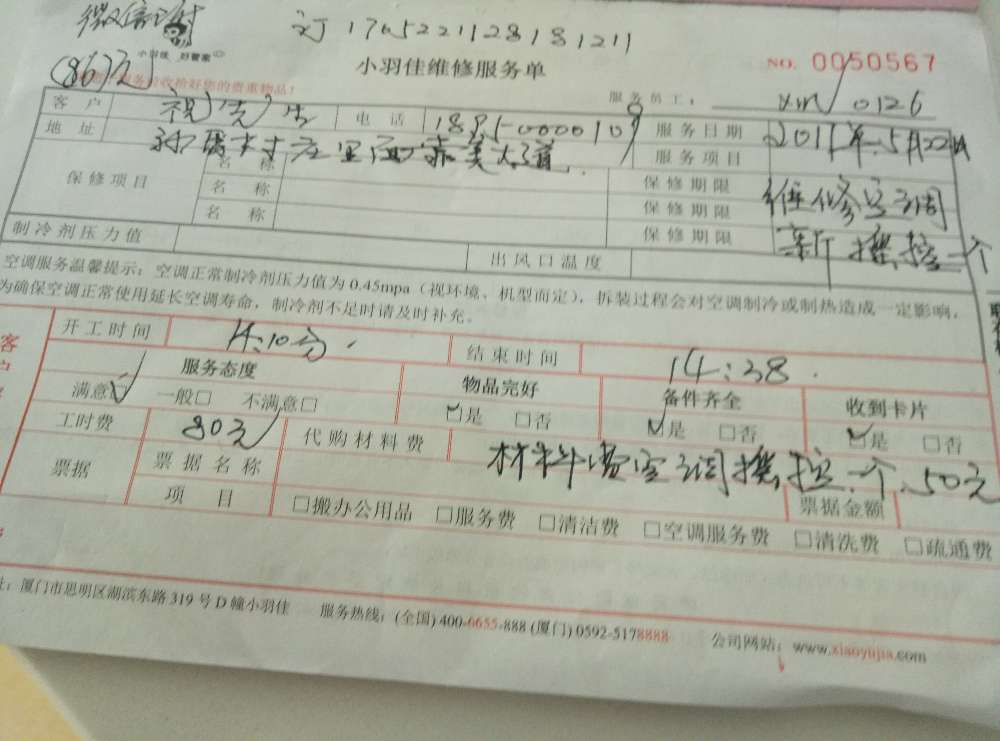 微信
订 1705221128181211
小羽佳 好管家
小羽佳维修服务单
NO. 0050567
收拾好您的贵重物品！
服务员工： xm/0126
客 户 先生 电 话 服务日期
地 址 服务项目 维修空调
保修项目 名 称 保修期限
名 称 保修期限
名 称 保修期限 新 摇控一个
制冷剂压力值 出风口温度
空调服务温馨提示：空调正常制冷剂压力值为0.45mpa（视环境、机型而定），拆装过程会对空调制冷或制热造成一定影响，
为确保空调正常使用延长空调寿命，制冷剂不足时请及时补充。
开工时间 14:10分. 结束时间 14:38.
服务态度 物品完好 备件齐全 收到卡片
满意☑ 一般□ 不满意□ ☑是 □否 ☑是 □否 ☑是 □否
工时费 80元 代购材料费 材料费空调摇控一个.50元
票据 票据名称 票据金额
项 目 □搬办公用品 □服务费 □清洁费 □空调服务费 □清洗费 □疏通费
厦门市思明区湖滨东路319号D幢小羽佳 服务热线：(全国) 400-6655-888 (厦门) 0592-5178888 公司网站：www.xiaoyujia.com